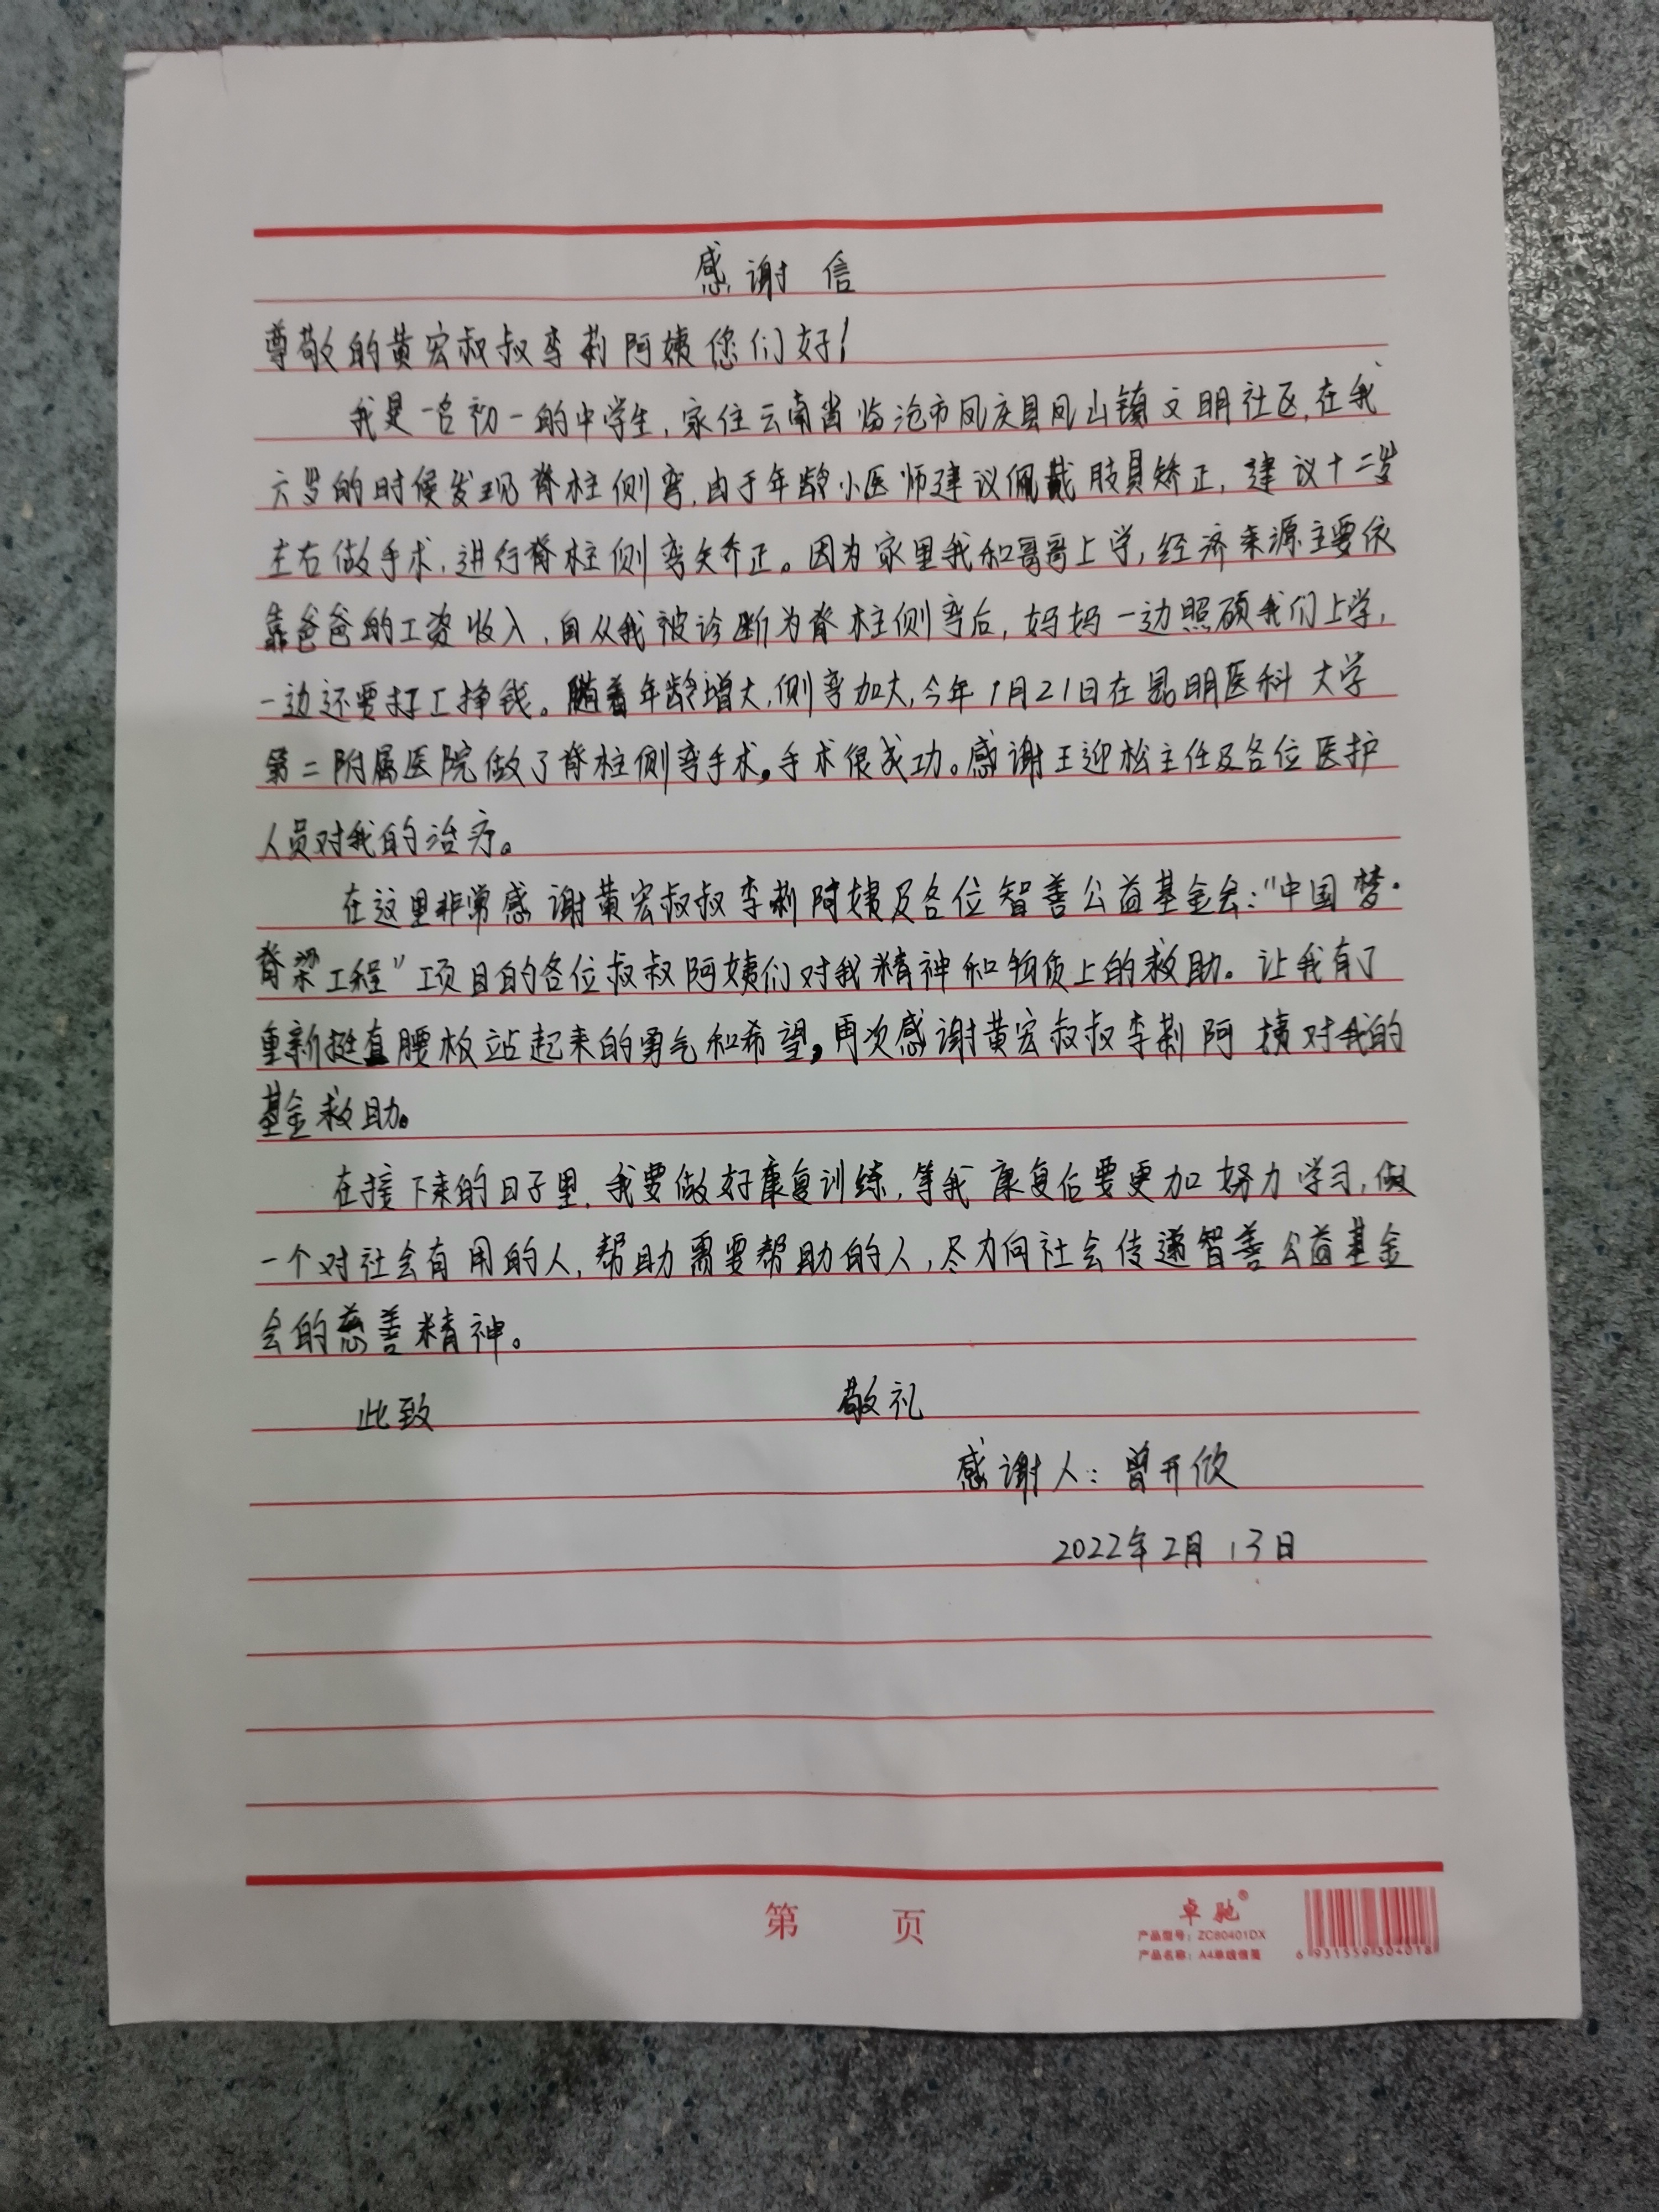 感谢信
尊敬的黄宏叔叔李莉阿姨您们好!
我是一名初一的中学生,家住云南省临沧市凤庆县凤山镇文明社区,在我
六岁的时候发现脊柱侧弯,由于年龄小医师建议佩戴肢具矫正,建议十二岁
左右做手术,进行脊柱侧弯矫正。因为家里我和哥哥上学,经济来源主要依
靠爸爸的工资收入,自从我被诊断为脊柱侧弯后,妈妈一边照顾我们上学,
一边还要打工挣钱。随着年龄增大,侧弯加大,今年1月21日在昆明医科大学
第二附属医院做了脊柱侧弯手术,手术很成功。感谢王迎松主任及各位医护
人员对我的治疗。
在这里非常感谢黄宏叔叔李莉阿姨及各位智善公益基金会:"中国梦·
脊梁工程"项目的各位叔叔阿姨们对我精神和物质上的救助。让我有了
重新挺直腰板站起来的勇气和希望,再次感谢黄宏叔叔李莉阿姨对我的
基金救助。
在接下来的日子里,我要做好康复训练,等我康复后要更加努力学习,做
一个对社会有用的人,帮助需要帮助的人,尽力向社会传递智善公益基金
会的慈善精神。
此致 敬礼
感谢人:曾开欣
2022年2月13日
第 页
卓驰®
产品型号:ZC80401DX
产品名称:A4单线信笺
6 931559 304018